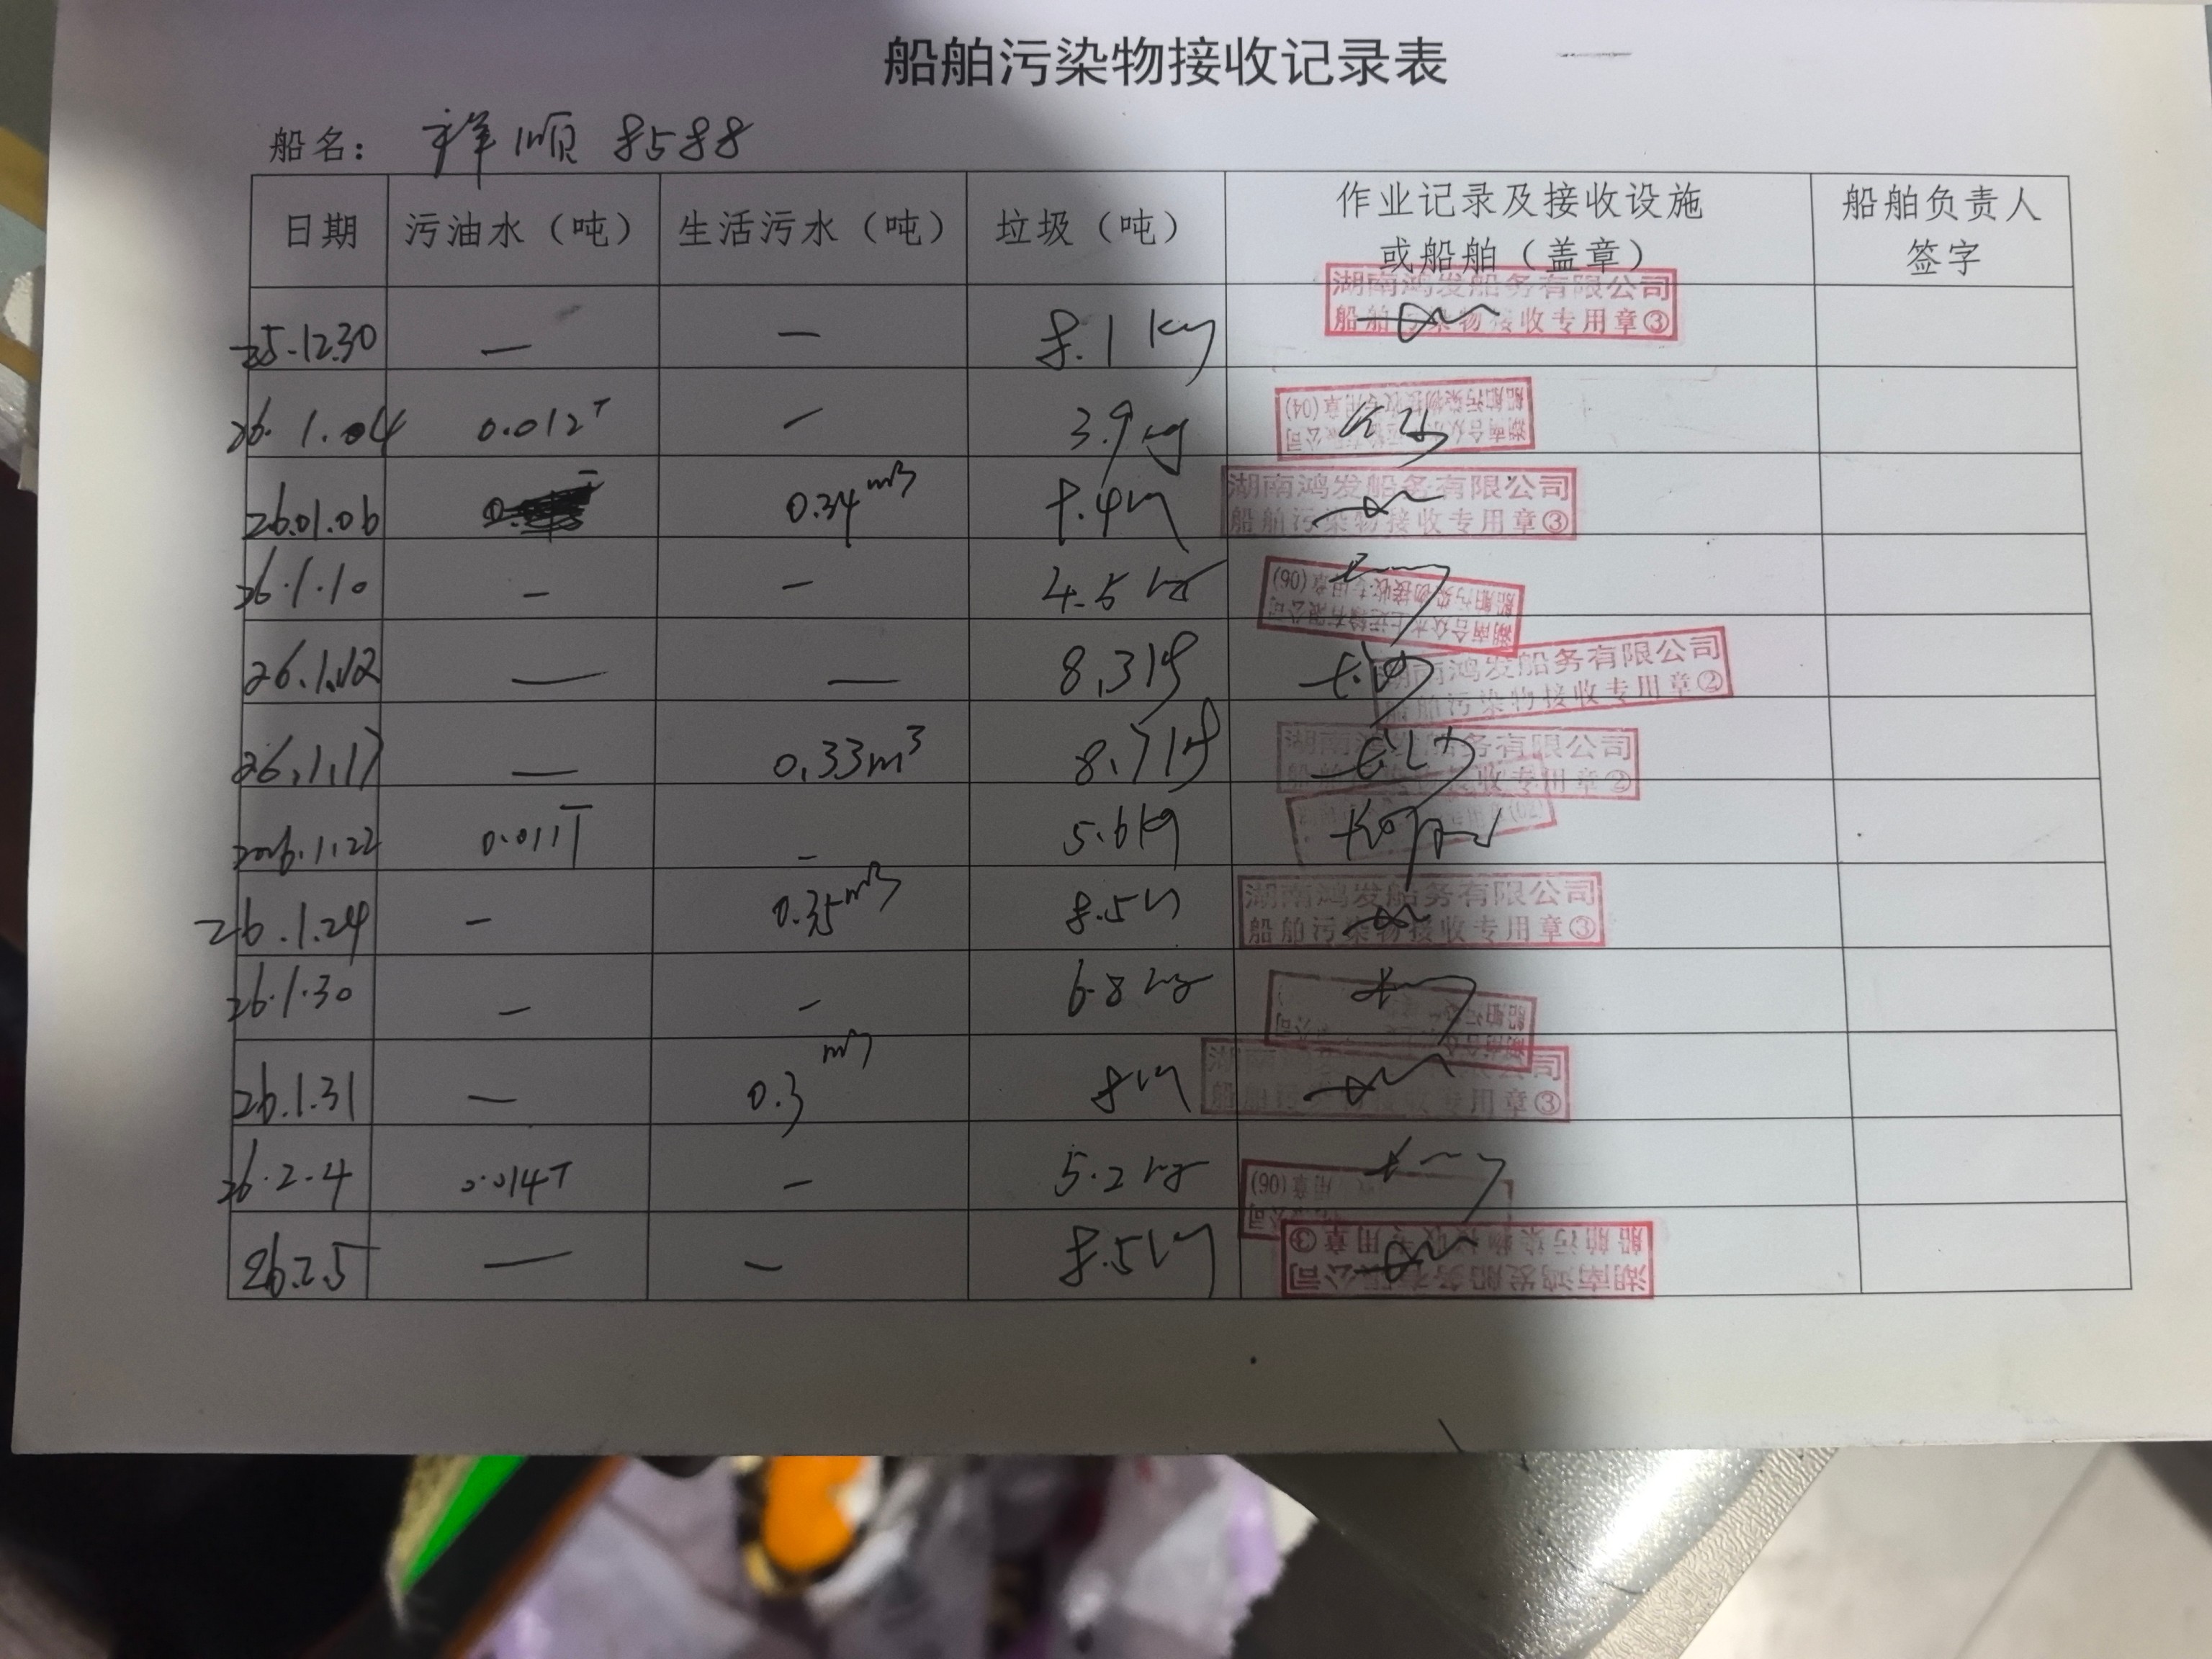 船舶污染物接收记录表
船名： 祥顺 8588
日期 污油水（吨） 生活污水（吨） 垃圾（吨） 作业记录及接收设施或船舶（盖章） 船舶负责人签字
25.12.30 — — 8.1 kg 湖南鸿发船务有限公司 船舶污染物接收专用章③
26.1.04 0.012T — 3.9 kg 船舶污染物接收专用章(04)
26.01.06 0.34m3 湖南鸿发船务有限公司 船舶污染物接收专用章③
26.1.10 — — 4.5 kg 湖南合众水上运输有限公司 船舶污染物接收专用章(06)
26.1.12 — — 8.3kg 湖南鸿发船务有限公司 船舶污染物接收专用章②
26.1.17 — 0.33m³ 8.7kg 湖南鸿发船务有限公司 船舶污染物接收专用章②
2026.1.22 0.011T — 5.6kg
26.1.24 — 0.35m3 8.5kg 湖南鸿发船务有限公司 船舶污染物接收专用章③
26.1.30 — — 6.8 kg
26.1.31 — 0.3 m3 8kg 湖南鸿发船务有限公司 船舶污染物接收专用章③
26.2.4 0.014T — 5.2 kg 用章(06)
26.2.5 — — 8.5kg 湖南鸿发船务有限公司 船舶污染物接收专用章③